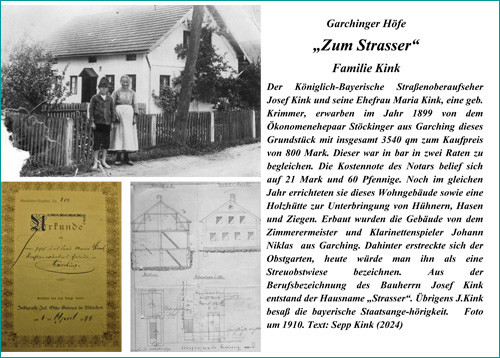 Garchinger Höfe
„Zum Strasser“
Familie Kink
Der Königlich-Bayerische Straßenoberaufseher
Josef Kink und seine Ehefrau Maria Kink, eine geb.
Krimmer, erwarben im Jahr 1899 von dem
Ökonomenehepaar Stöckinger aus Garching dieses
Grundstück mit insgesamt 3540 qm zum Kaufpreis
von 800 Mark. Dieser war in bar in zwei Raten zu
begleichen. Die Kostennote des Notars belief sich
auf 21 Mark und 60 Pfennige. Noch im gleichen
Jahr errichteten sie dieses Wohngebäude sowie eine
Holzhütte zur Unterbringung von Hühnern, Hasen
und Ziegen. Erbaut wurden die Gebäude von dem
Zimmerermeister und Klarinettenspieler Johann
Niklas aus Garching. Dahinter erstreckte sich der
Obstgarten, heute würde man ihn als eine
Streuobstwiese bezeichnen. Aus der
Berufsbezeichnung des Bauherrn Josef Kink
entstand der Hausname „Strasser“. Übrigens J.Kink
besaß die bayerische Staatsange-hörigkeit. Foto
um 1910. Text: Sepp Kink (2024)
Urkunde